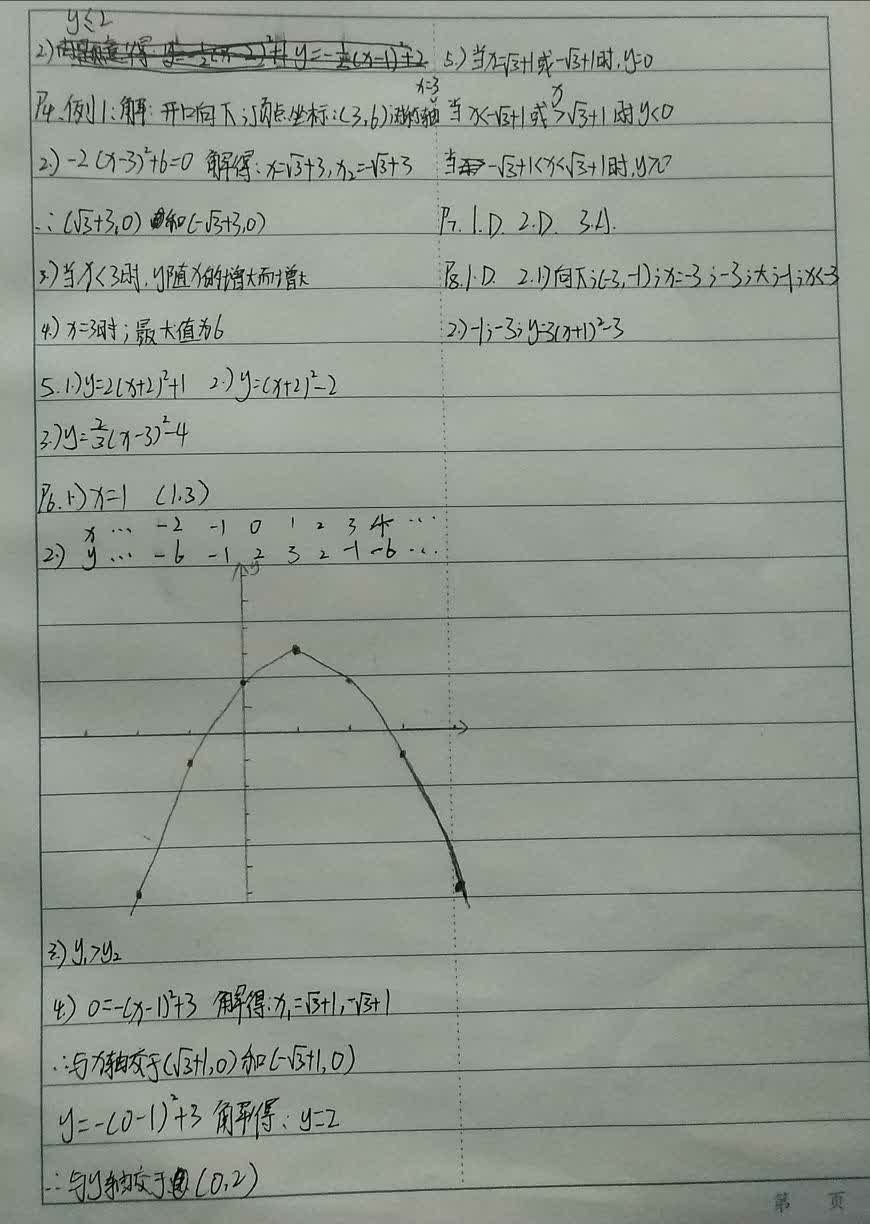 y≤2
2.) y=-½(x-1)²+2
P4.例1:解:开口向下;顶点坐标:(3,6);对称轴x=3
2.) -2(x-3)²+6=0 解得:x=√3+3,x₂=-√3+3
∴(√3+3,0)和(-√3+3,0)
3.)当x<3时,y随x的增大而增大
4.) x=3时;最大值为6
5.1.)y=2(x+2)²+1 2.)y=(x+2)²-2
3.)y=⅔(x-3)²-4
P6.1.)x=1 (1.3)
x … -2 -1 0 1 2 3 4 …
2.) y … -6 -1 2 3 2 -1 -6 …
y
3.) y₁>y₂
4.) 0=-(x-1)²+3 解得:x₁=√3+1,-√3+1
∴与x轴交于(√3+1,0)和(-√3+1,0)
y=-(0-1)²+3 解得:y=2
∴与y轴交于(0,2)
5.)当x=√3+1或-√3+1时,y=0
当x<-√3+1或x>√3+1时y<0
当-√3+1<x<√3+1时,y>0
P7.1.D. 2.D. 3.A.
P8.1.D. 2.1)向下;(-3,-1);x=-3;-3;大;-1;x<-3
2.)-1;-3;y=3(x+1)²-3
第 页